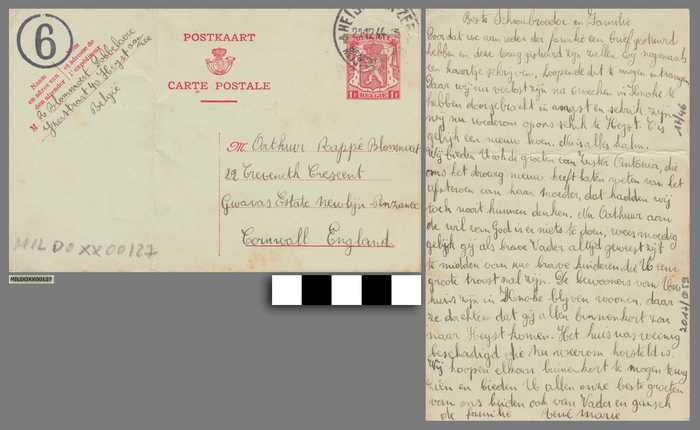 6
POSTKAART
CARTE POSTALE
HEIST
ZEE
Naam
en adres van
den afzender
Nom
et adresse de
l'expéditeur
M. R Blommaert Lobbelaere
Yzerstraat 40 Heyst aan
Zee
België
1F
BELGIE
1F
M. Arthuur Rappé Blommaert
22 Treveneth Crescent
Gwavas Estate Newlyn-Penzance
Cornwall England
MILDOXX00127
MILDOXX00127
Beste Schoonbroeder en Familie
Voordat we aan ieder der familie een brief gestuurd
hebben en deze terug gestuurd zijn zullen wij nogmaals
een kaartje schrijven, hopende dit te mogen ontvangen
Daar wij nu verlost zijn na 6 weken in Knocke te
hebben doorgebracht in angst en schrik zijn
wij nu wederom op ons schik te Heyst. 't is
gelijk een nieuw leven. Nu is alles kalm.
Wij bieden U ook de groeten van Zuster Antonia, die
ons het droevig nieuw heeft laten weten van het
afsterven van haar Moeder, dat hadden wij
toch nooit kunnen denken. Nu Arthuur aan
de wil van God is er niets te doen, wees moedig
gelijk gij als brave Vader altijd geweest zijt
te midden van uw brave kinderen die U een
groote troost zal zijn. De bewooners van Uw
huis zijn in Knocke blijven woonen, daar
ze dachten dat gij allen binnenkort zou
naar Heyst komen. Het huis was weinig
beschadigd die nu weerom hersteld is.
Wij hoopen elkaar binnenkort te mogen terug
zien en bieden U allen onze beste groeten
van ons beiden ook van Vader en gansch
de familie René Marie